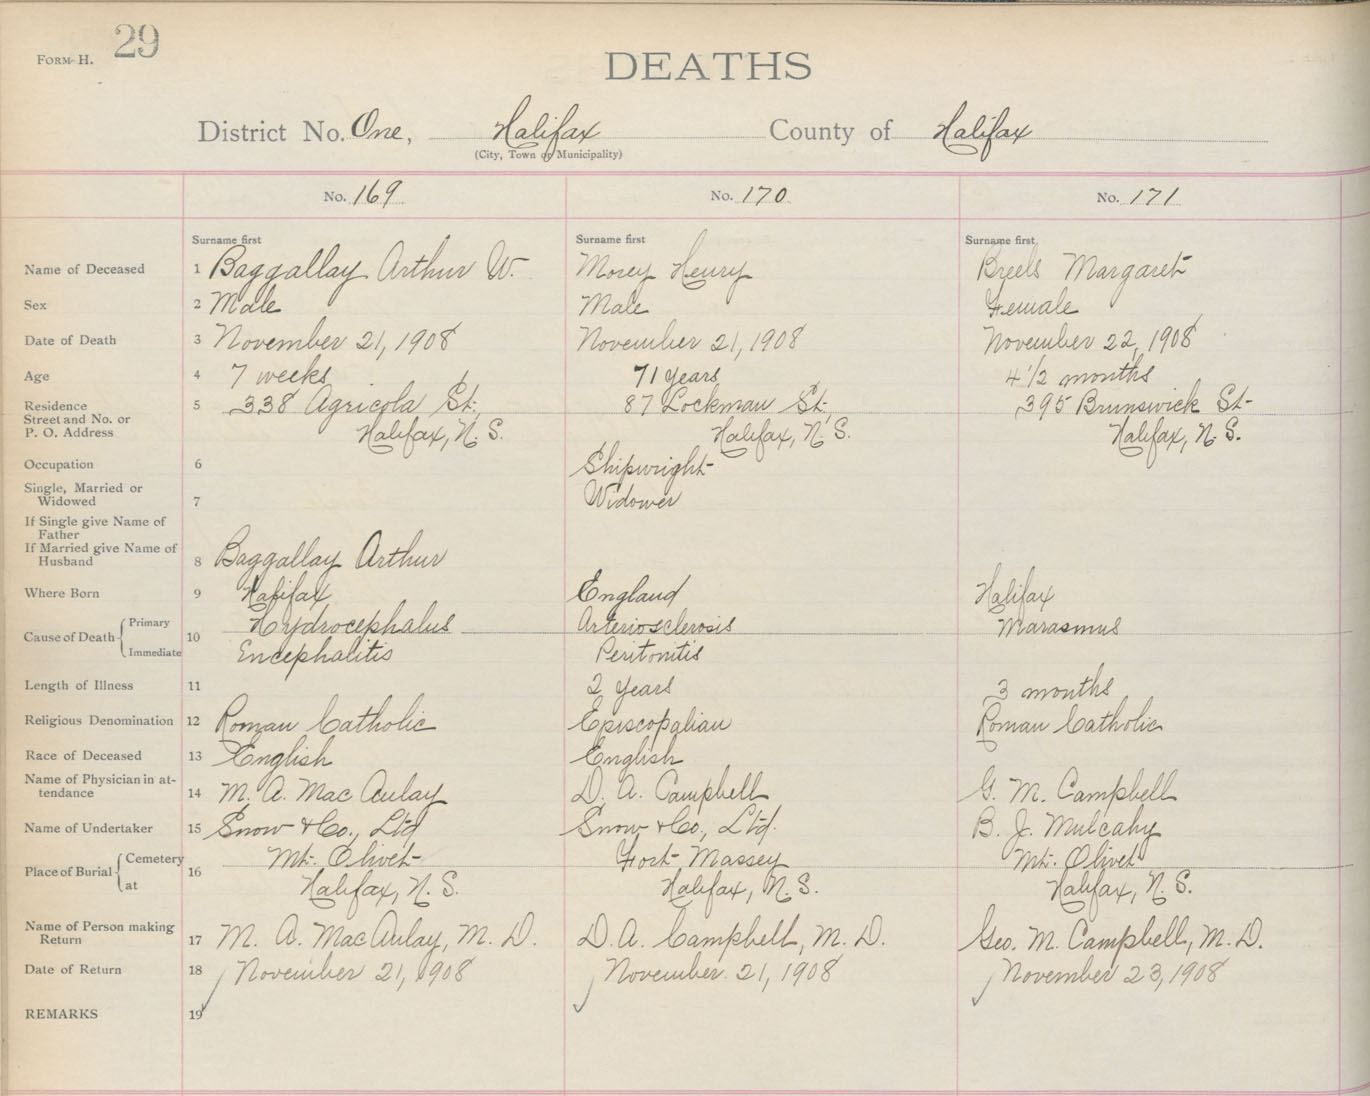 FORM H. 29
DEATHS
District No. One, Halifax County of Halifax
(City, Town or Municipality)
No. 169 No. 170 No. 171
Surname first Surname first Surname first
Name of Deceased 1 Baggallay Arthur W. Morey Henry Breels Margaret
Sex 2 Male Male Female
Date of Death 3 November 21, 1908 November 21, 1908 November 22, 1908
Age 4 7 weeks 71 years 4 1/2 months
Residence 5 338 Agricola St., 87 Lockman St., 395 Brunswick St-
Street and No. or
P. O. Address Halifax, N. S. Halifax, N. S. Halifax, N. S.
Occupation 6 Shipwright
Single, Married or
Widowed 7 Widower
If Single give Name of
Father
If Married give Name of
Husband 8 Baggallay Arthur
Where Born 9 Halifax England Halifax
Cause of Death Primary 10 Hydrocephalus Arteriosclerosis Marasmus
Immediate Encephalitis Peritonitis
Length of Illness 11 2 years 3 months
Religious Denomination 12 Roman Catholic Episcopalian Roman Catholic
Race of Deceased 13 English English
Name of Physician in at-
tendance 14 M. A. MacAulay D. A. Campbell G. M. Campbell
Name of Undertaker 15 Snow & Co., Ltd Snow & Co., Ltd. B. J. Mulcahy
Place of Burial Cemetery 16 Mt. Olivet Fort Massey Mt. Olivet
at Halifax, N. S. Halifax, N. S. Halifax, N. S.
Name of Person making
Return 17 M. A. MacAulay, M. D. D. A. Campbell, M. D. Geo. M. Campbell, M. D.
Date of Return 18 November 21, 1908 November 21, 1908 November 23, 1908
REMARKS 19